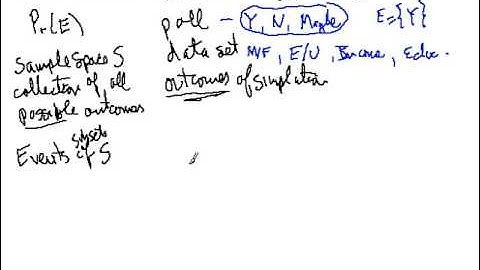 Pr(E)
Sample Space S
collection of all
possible outcomes
Events subsets of S
poll - Y, N, Maybe E={Y}
data set M/F, E/U, Income, Educ.
outcomes of simulation